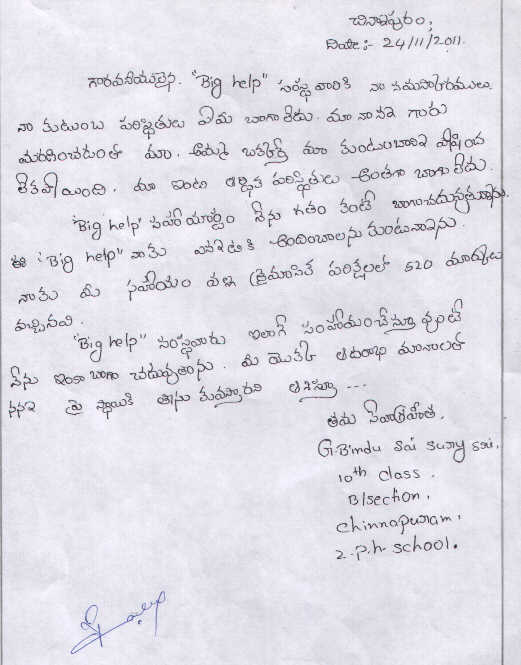 చినాపురం,
దియః:- 24/11/2011.
గౌరవనీయులైన. "Big help" సంస్థ వారికి నా నమస్కారములు.
నా కుటుంబ పరిస్థితులు ఏమి బాగాలేదు. మా నాన్న గారు
మరణించడంతో మా. అమ్మ ఒకత్తే మా కుటుంబాన్ని పోషించ
లేకపోయింది. మా ఇంటి ఆర్థిక పరిస్థితులు అంతగా బాగాలేదు.
"Big help" సహాయార్థం నేను గతం కంటే బాగా చదువుతున్నాను.
ఈ "Big help" నాకు ఎప్పటికి అందించాలను కుంటున్నాను.
నాకు మీ సహాయం వల్ల త్రైమాసిక పరీక్షలలో 520 మార్కులు
వచ్చినవి.
"Big help" సంస్థవారు ఇలాగే సహాయంచేస్తూ వుంటే
నేను ఇంకా బాగా చదువుతాను. మీ యొక్క ఆదరాభి మానాలతో
నన్ను పై స్థాయికి తీసు కువస్తారని ఆశిస్తూ ...
తమ సేవాగ్రహీత.
G.Bindu Sai Surya Sri.
10th class.
B/section,
chinnapuram,
z.p.h school.